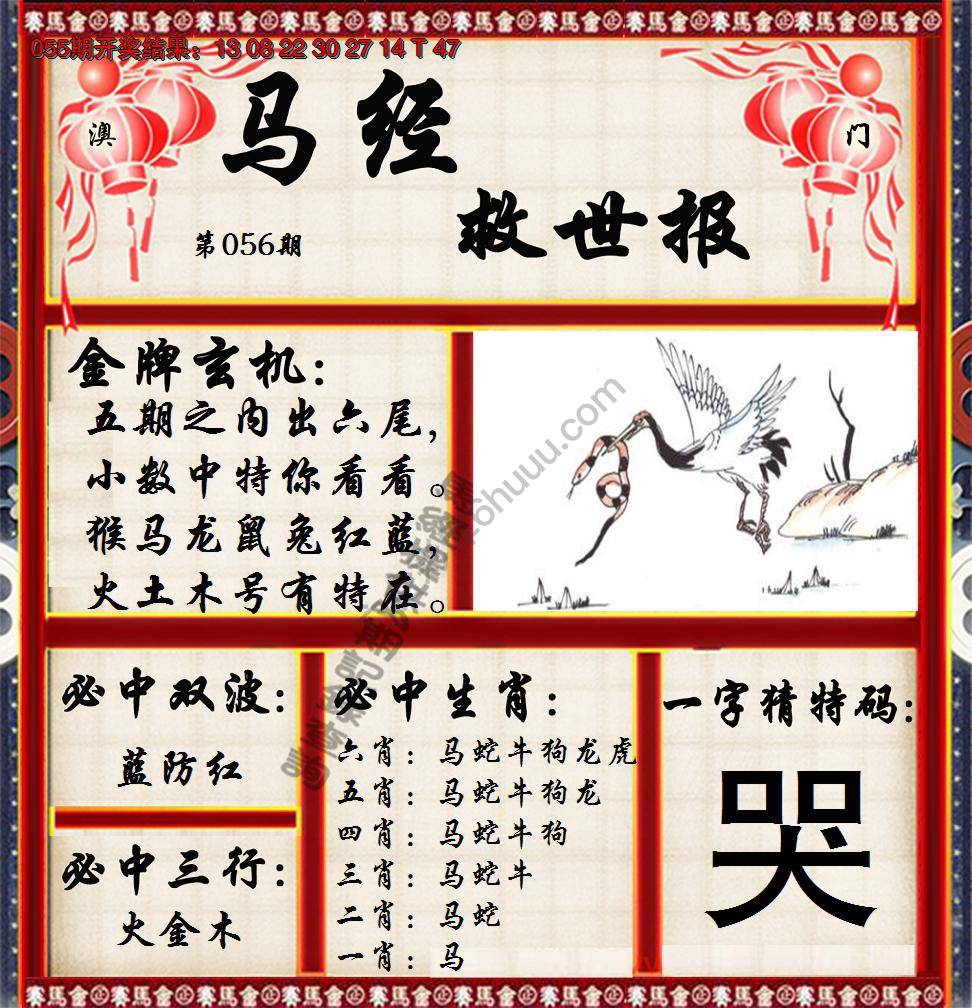 赛马会
055期开奖结果：13 08 22 30 27 14 T 47
澳
门
马经
救世报
第056期
金牌玄机：
五期之内出六尾，
小数中特你看看。
猴马龙鼠兔红蓝，
火土木号有特在。
必中双波：
蓝防红
必中三行：
火金木
必中生肖：
六肖：马蛇牛狗龙虎
五肖：马蛇牛狗龙
四肖：马蛇牛狗
三肖：马蛇牛
二肖：马蛇
一肖：马
一字猜特码：
哭